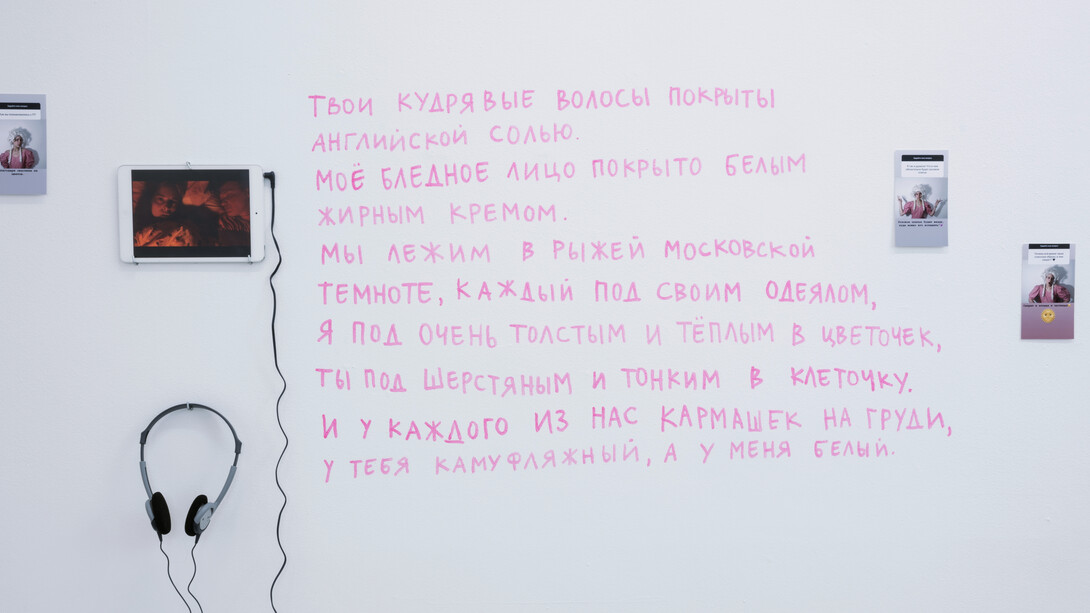 ТВОИ КУДРЯВЫЕ ВОЛОСЫ ПОКРЫТЫ
АНГЛИЙСКОЙ СОЛЬЮ.
МОЁ БЛЕДНОЕ ЛИЦО ПОКРЫТО БЕЛЫМ
ЖИРНЫМ КРЕМОМ.
МЫ ЛЕЖИМ В РЫЖЕЙ МОСКОВСКОЙ
ТЕМНОТЕ, КАЖДЫЙ ПОД СВОИМ ОДЕЯЛОМ,
Я ПОД ОЧЕНЬ ТОЛСТЫМ И ТЁПЛЫМ В ЦВЕТОЧЕК,
ТЫ ПОД ШЕРСТЯНЫМ И ТОНКИМ В КЛЕТОЧКУ.
И У КАЖДОГО ИЗ НАС КАРМАШЕК НА ГРУДИ,
У ТЕБЯ КАМУФЛЯЖНЫЙ, А У МЕНЯ БЕЛЫЙ.